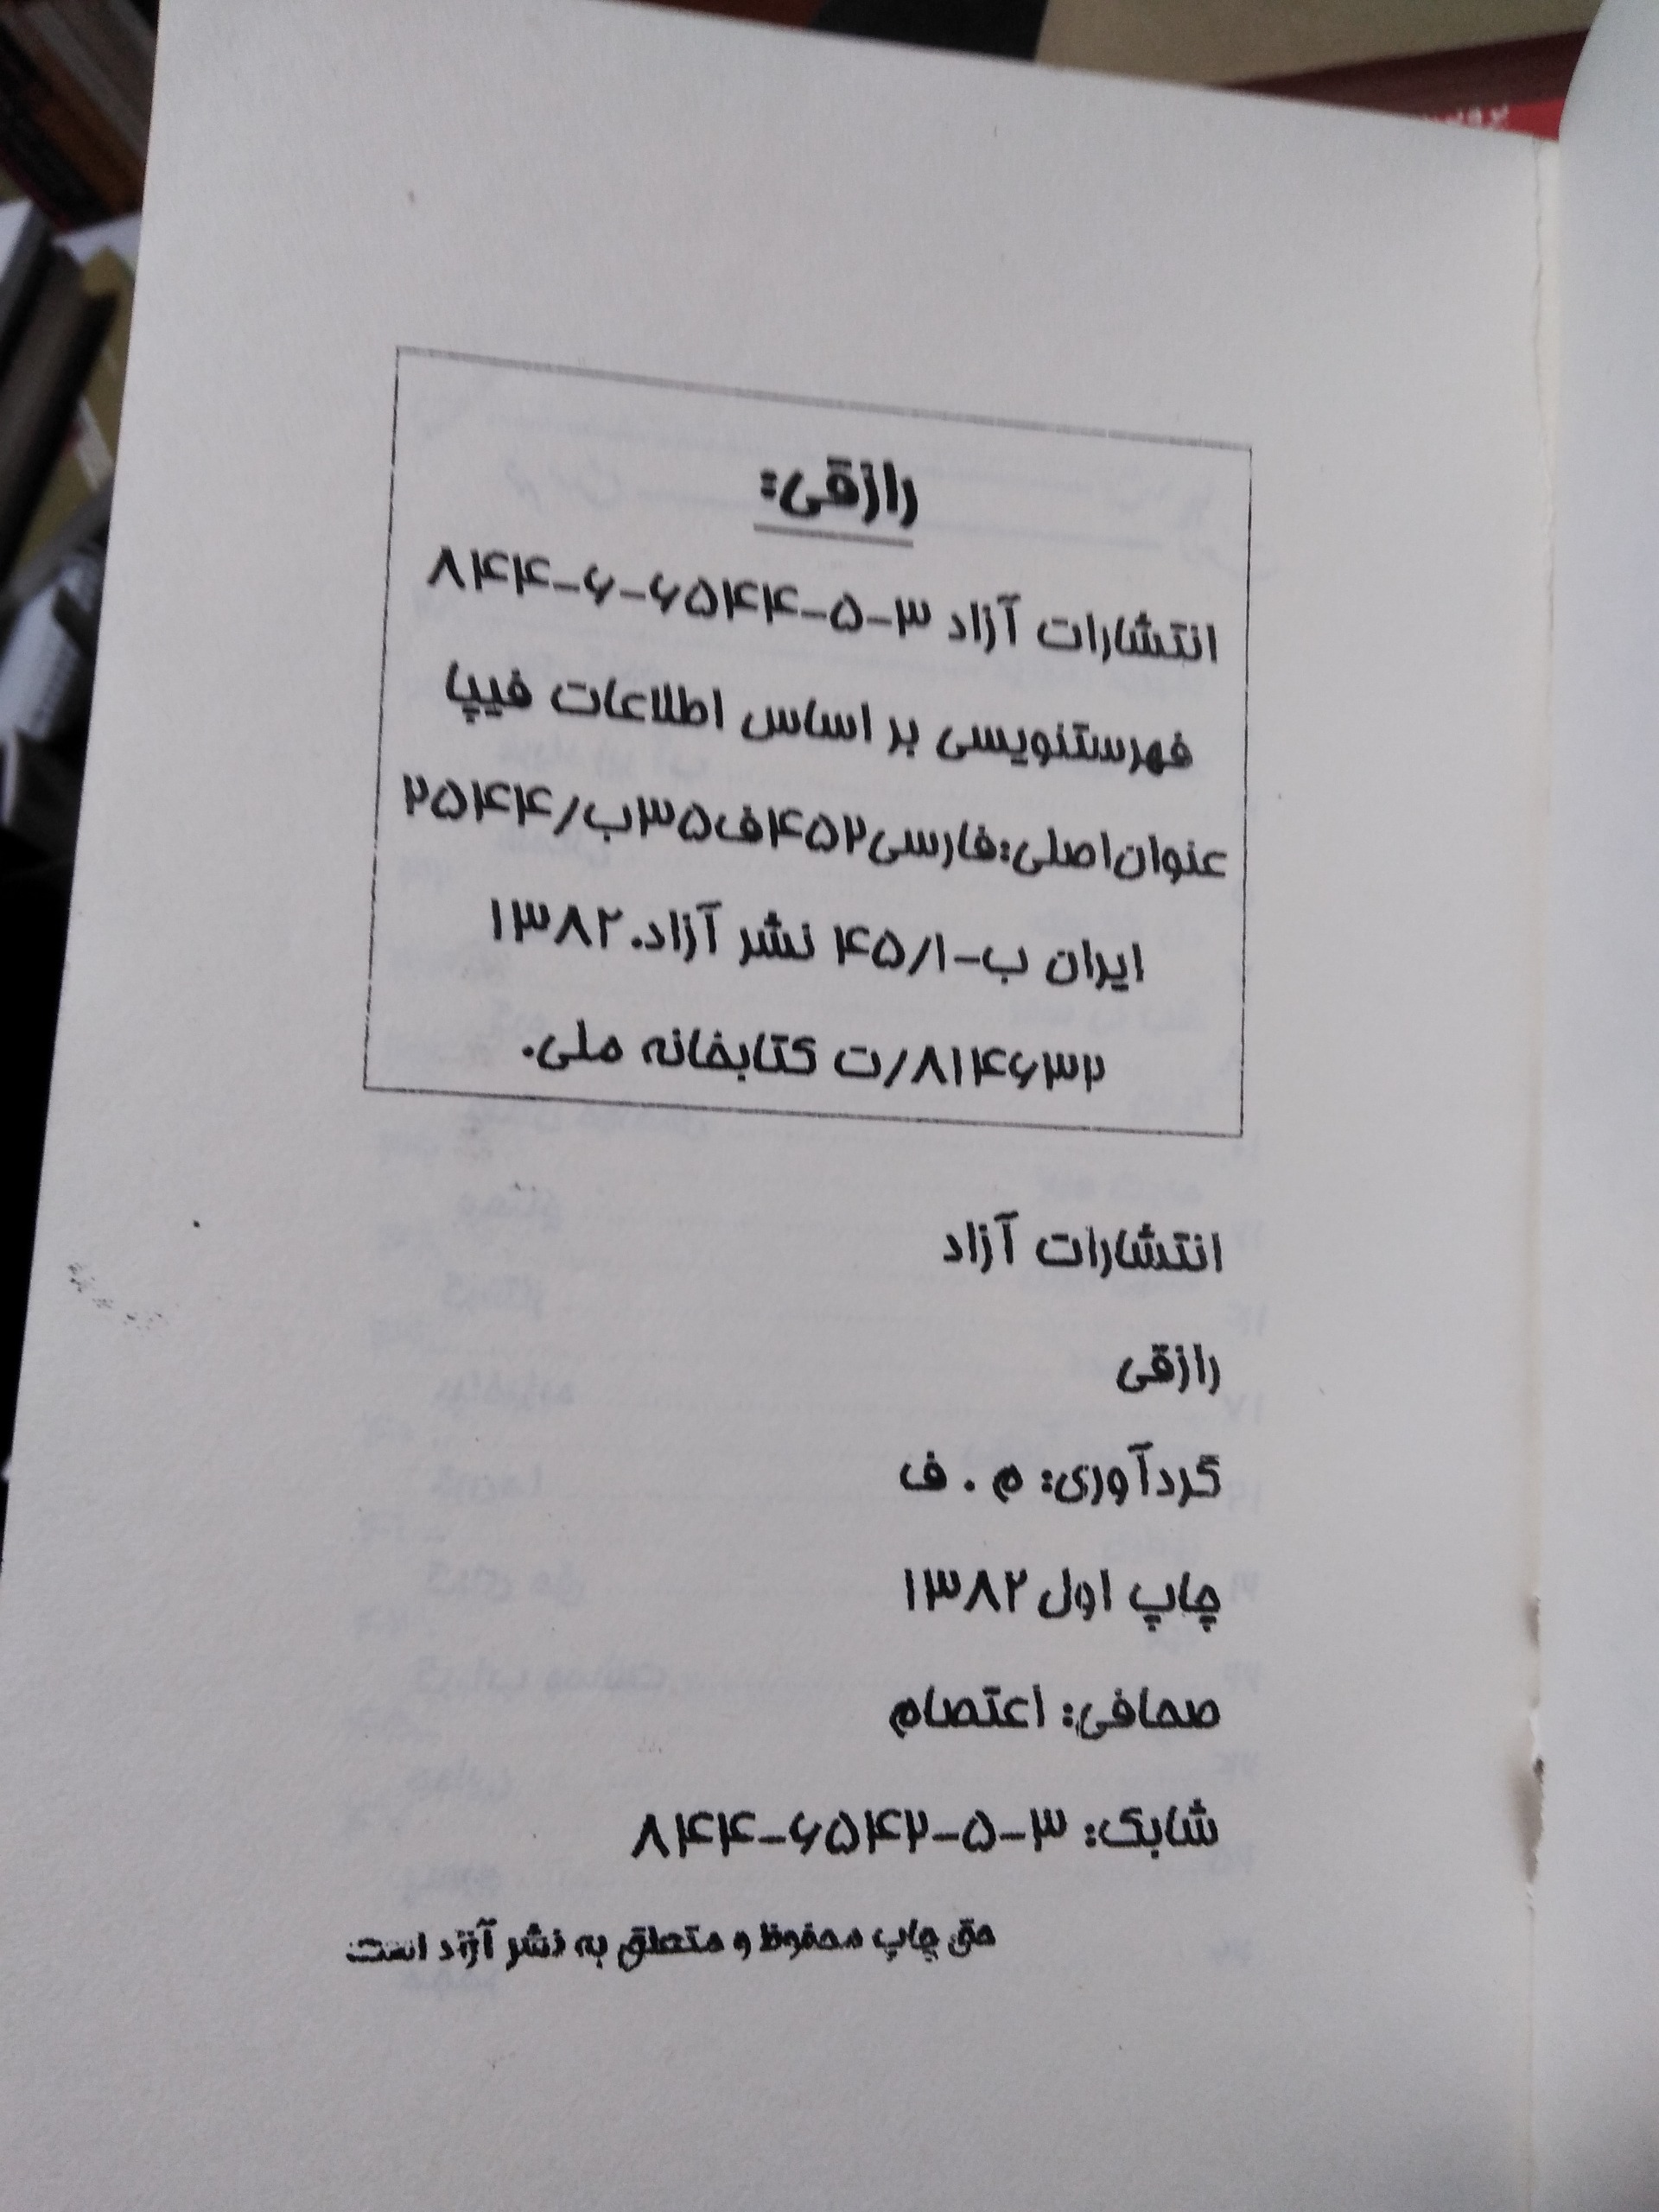 رازقی:
انتشارات آزاد ۳-۵-۶۵۴۴-۶-۸۴۴
فهرستنویسی بر اساس اطلاعات فیپا
عنوان‌اصلی:فارسی۴۵۲ف۳۵ب/۲۵۴۴
ایران ب-۴۵/۱ نشر آزاد.۱۳۸۲
۸۱۴۶۳۲/ت کتابخانه ملی.
انتشارات آزاد
رازقی
گردآوری: م . ف
چاپ اول ۱۳۸۲
صحافی: اعتصام
شابک: ۳-۵-۶۵۴۲-۸۴۴
حق چاپ محفوظ و متعلق به نشر آزاد است